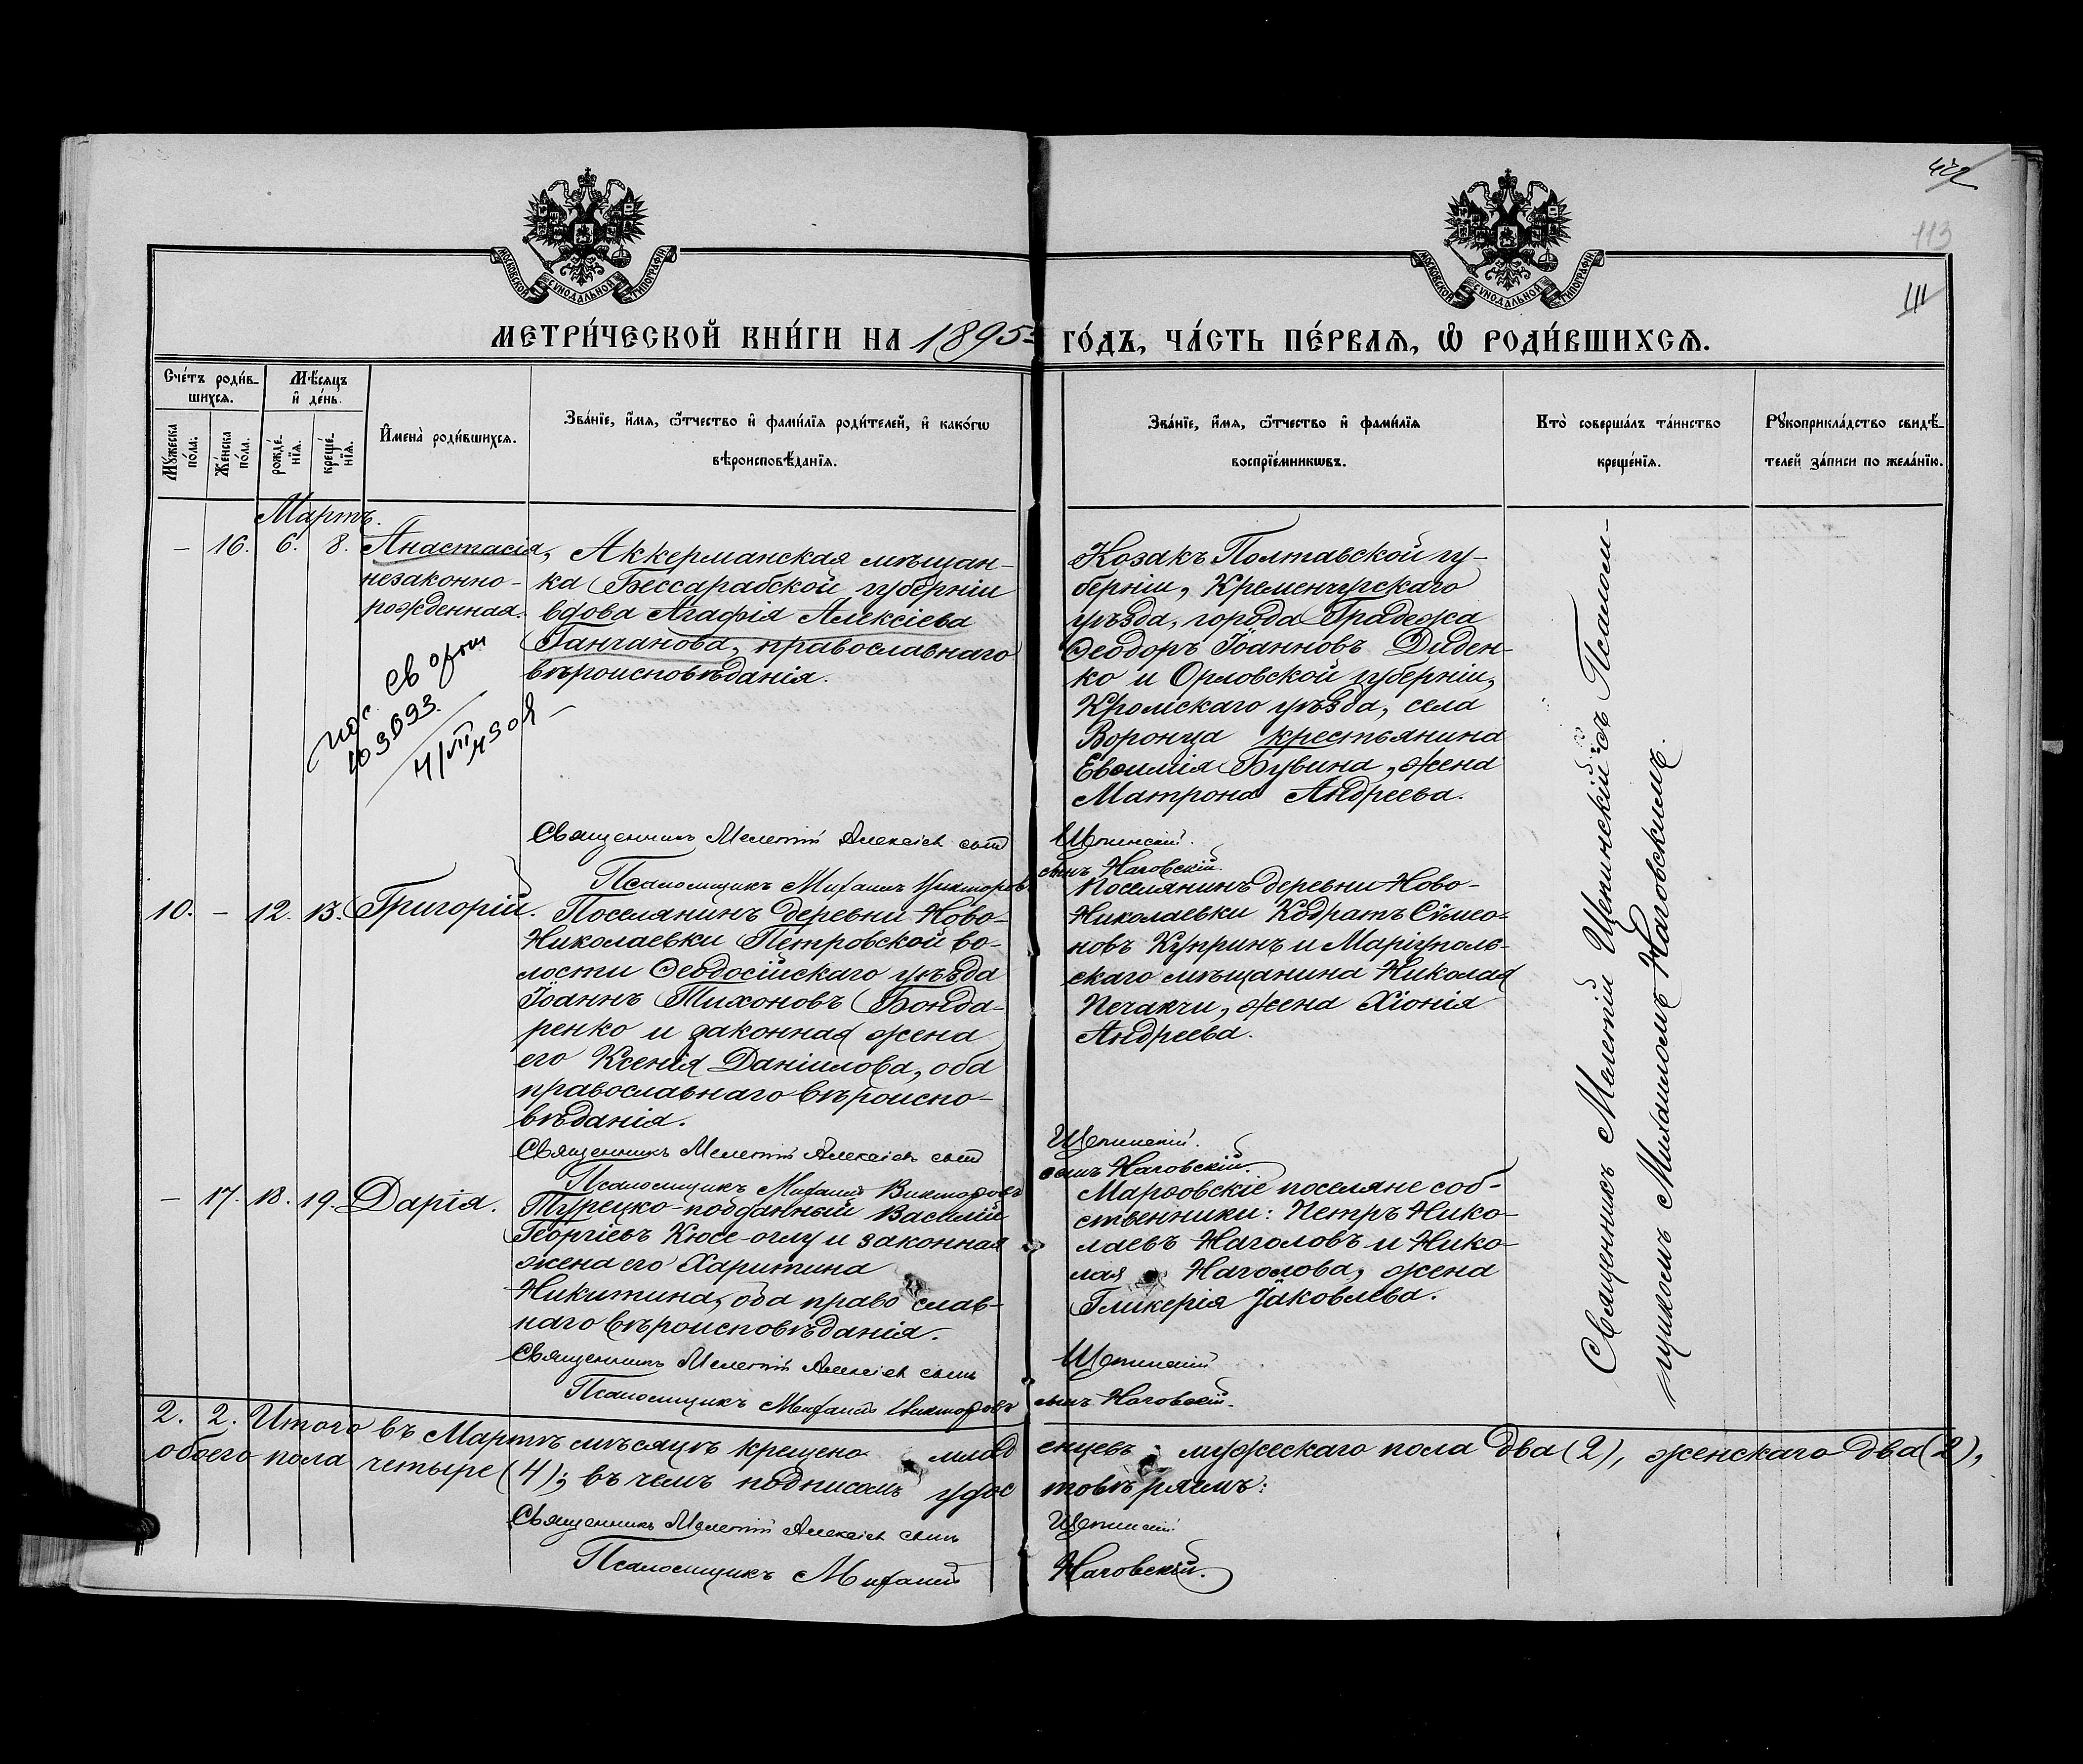 113
111
МОСКОВСКОЙ СѴНОДАЛЬНОЙ ТИПОГРАФІИ
МОСКОВСКОЙ СѴНОДАЛЬНОЙ ТИПОГРАФІИ
МЕТРИ́ЧЕСКОЙ КНИ́ГИ НА 1895 ГО́ДЪ, ЧА́СТЬ ПЕ́РВАѦ, Ѡ҆ РОДИ́ВШИХСѦ.
Сче́тъ роди́в-
шихсѧ.
Мѣ́сѧцъ
и҆ де́нь.
Мꙋ́жеска
по́ла.
Же́нска
по́ла.
рожде́-
нїѧ.
креще́-
нїѧ.
И҆мена̀ роди́вшихсѧ.
Зва́нїе, и҆́мѧ, ѻ҆́тчество и҆ фами́лїѧ роди́телей, и҆ како́гѡ
вѣроисповѣ́данїѧ.
Зва́нїе, и҆́мѧ, ѻ҆́тчество и҆ фами́лїѧ
воспрїе́мникѡвъ.
Кто̀ соверша́лъ та́инство
креще́нїѧ.
Рꙋкоприкла́дство свидѣ́-
телей за́писи по жела́нїю.
Мартъ.
— 16. 6. 8. Анастасія,
незаконно-
рожденная.
Аккерманская мѣщан-
ка Бессарабской губерніи
вдова Агафія Алексіева
Ганчанова, православнаго
вѣроисповѣданія.
Козакъ Полтавской гу-
берніи, Кременчугскаго
уѣзда, города Градежа
Ѳеодоръ Іоанновъ Диден-
ко и Орловской губерніи,
Кромскаго уѣзда, села
Воронца крестьянина
Евѳимія Бувина, жена
Матрона Андреева.
Священникъ Мелетій Алексіевъ сынъ Щепинскій.
Псаломщикъ Михаилъ Викторовъ сынъ Наговскій.
10. — 12. 13. Григорій.
Поселянинъ деревни Ново-
Николаевки Петровской во-
лости Ѳеодосійскаго уѣзда
Іоаннъ Тихоновъ Бонда-
ренко и законная жена
его Ксенія Даніилова, оба
православнаго вѣроиспо-
вѣданія.
Поселянинъ деревни Ново-
Николаевки Кодратъ Сѵмео-
новъ Купринъ и Маріуполь-
скаго мѣщанина Николая
Печакчи, жена Хіонія
Андреева.
Священникъ Мелетій Алексіевъ сынъ Щепинскій.
Псаломщикъ Михаилъ Викторовъ сынъ Наговскій.
— 17. 18. 19. Дарія.
Турецко-подданный Василій
Георгіевъ Кюсе-оглу и законная
жена его Харитина
Никитина, оба православ-
наго вѣроисповѣданія.
Марѳовскіе поселяне соб-
ственники: Петръ Нико-
лаевъ Наголовъ и Нико-
лая Наголова, жена
Гликерія Іаковлева.
Священникъ Мелетій Алексіевъ сынъ Щепинскій
Псаломщикъ Михаилъ Викторовъ сынъ Наговскій.
Священникъ Мелетій Щепинскій съ Псалом-
щикомъ Михаиломъ Наговскимъ.
2. 2. Итого въ Мартѣ мѣсяцѣ крещено младенцевъ мужескаго пола два (2), женскаго два (2),
обоего пола четыре (4); въ чемъ подписомъ удостовѣряемъ:
Священникъ Мелетій Алексіевъ сынъ Щепинскій
Псаломщикъ Михаилъ Наговскій.